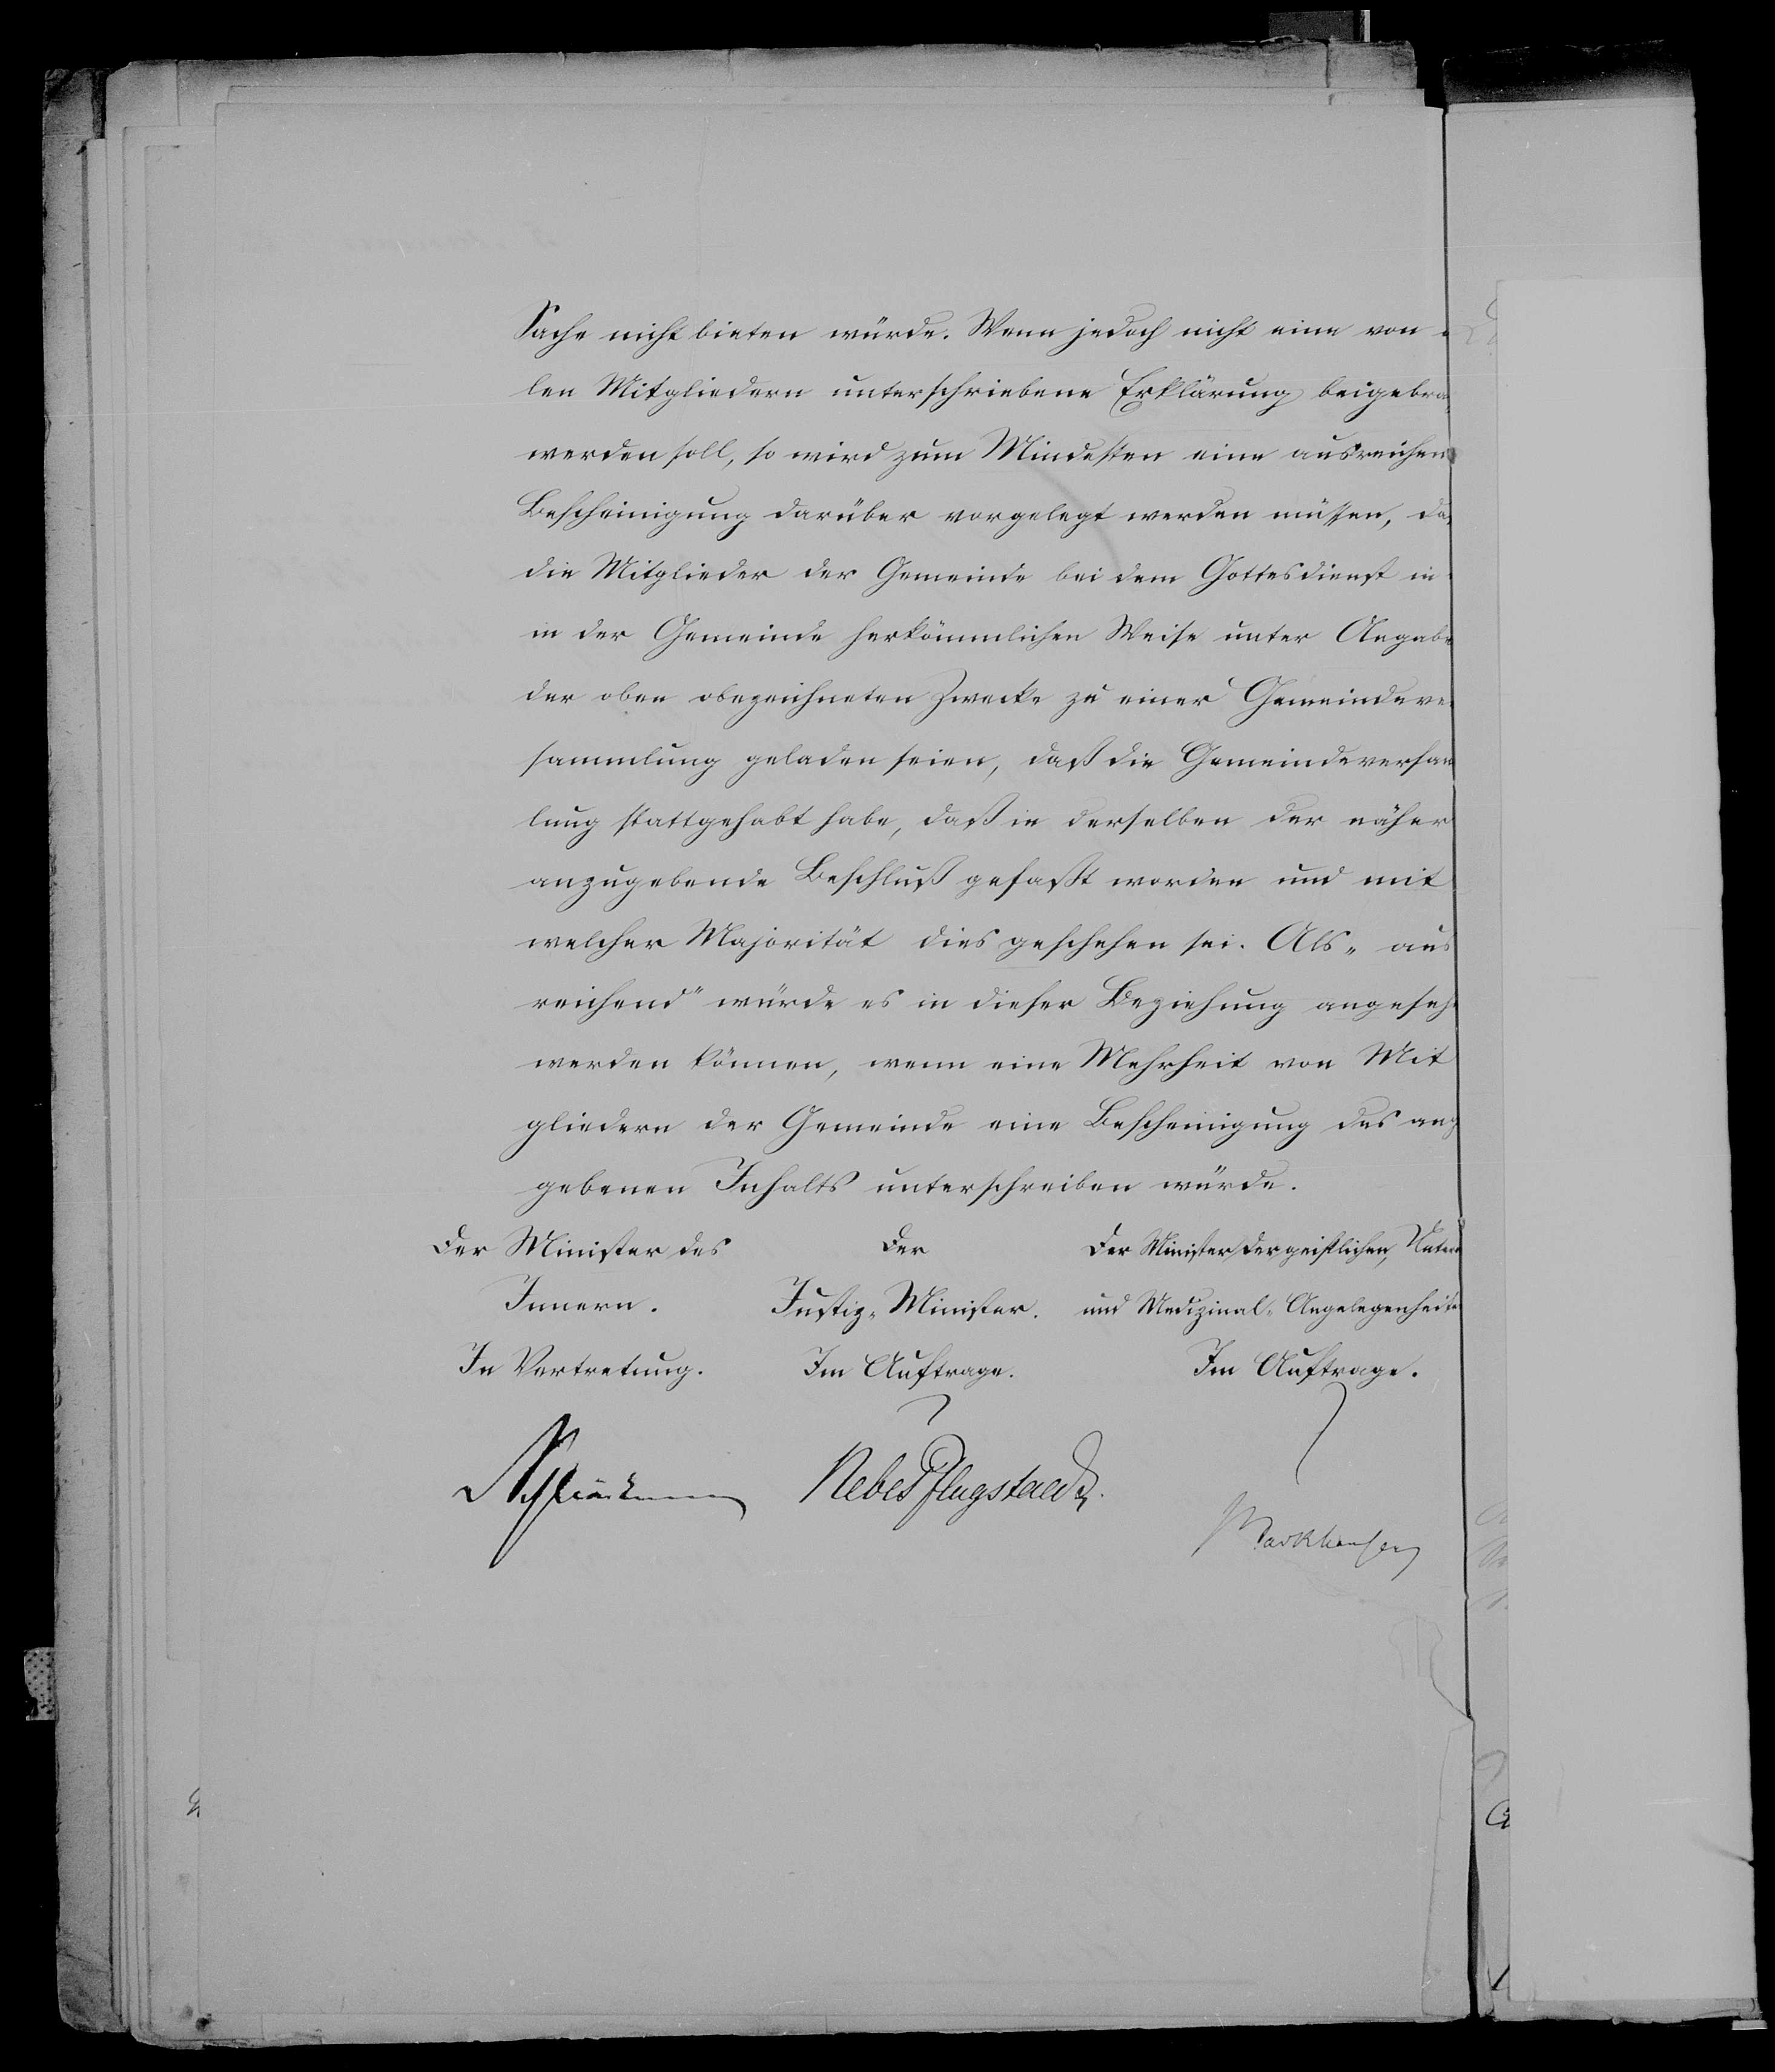 Sache nicht bieten würde. Wenn jedoch nicht eine von
len Mitgliedern unterschriebene Erklärung beigebra
werden soll, so wird zum Mindesten eine ausreichen
Bescheinigung darüber vorgelegt werden müssen, da
die Mitglieder der Gemeinde bei dem Gottesdienst in
in der Gemeinde herkömmlichen Weise unter Angabe
der oben obezeichneten Zwecke zu einer Gemeindeve
sammlung geladen seien, daß die Gemeindeversam
lung stattgehabt habe, daß in derselben der näher
anzugebende Beschluß gefaßt worden und mit
welcher Majorität dies geschehen sei. Als „aus
reichend" würde es in dieser Beziehung angeseh
werden können, wenn eine Mehrheit von Mit
gliedern der Gemeinde eine Bescheinigung des ang
gebenen Inhalts unterschreiben würde.
Der Minister des
Innern.
In Vertretung.
Der
Justiz-Minister.
Im Auftrage.
Nebe Pflugstaedt.
Der Minister der geistlichen, Unter
und Medizinal-Angelegenheite
Im Auftrage.
Barkhausen